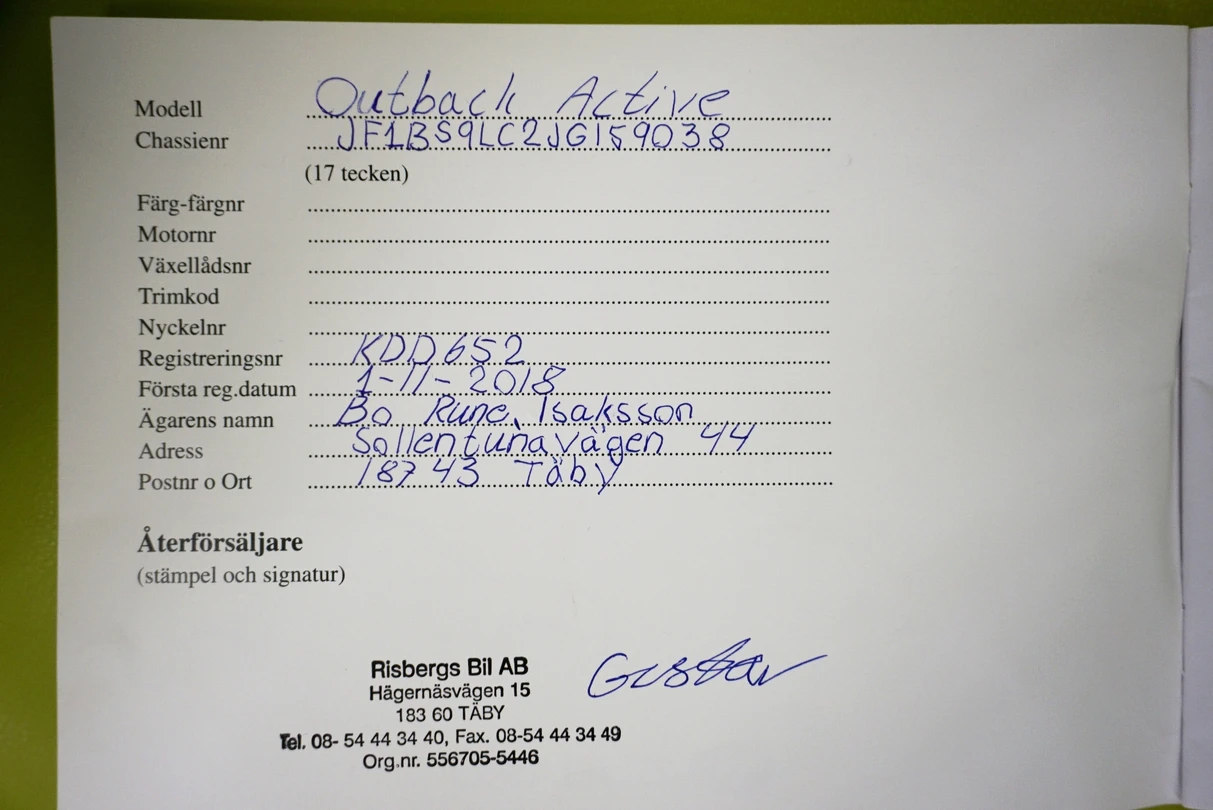 Modell Outback Active
Chassienr JF1BS9LC2JG159038
(17 tecken)
Färg-färgnr
Motornr
Växellådsnr
Trimkod
Nyckelnr
Registreringsnr KDD652
Första reg.datum 1-11-2018
Ägarens namn Bo Rune, Isaksson
Adress Sollentunavägen 44
Postnr o Ort 187 43 Täby
Återförsäljare
(stämpel och signatur)
Risbergs Bil AB
Gustav
Hägernäsvägen 15
183 60 TÄBY
Tel. 08- 54 44 34 40, Fax. 08-54 44 34 49
Org.nr. 556705-5446